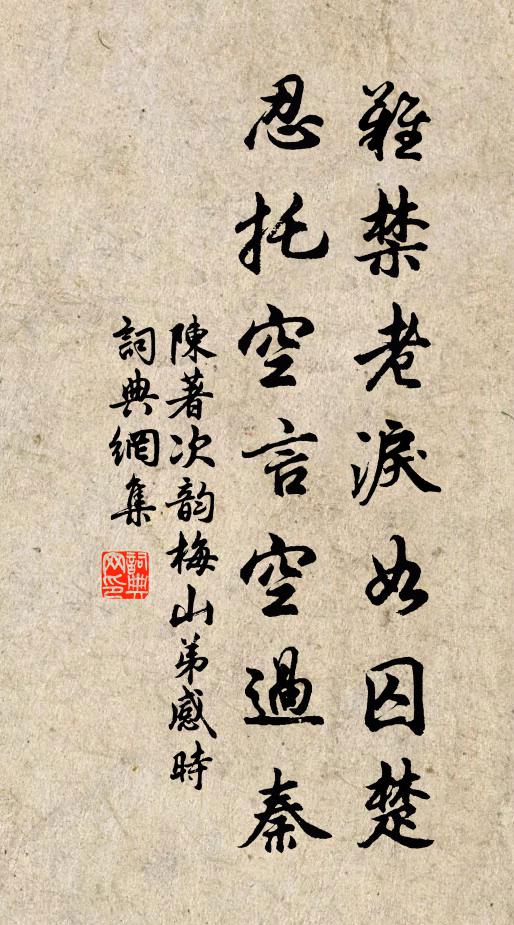 難禁老淚如囚楚
忍托空言空過秦
陳著次韵梅山弟感時
詞典網集
詞典网印